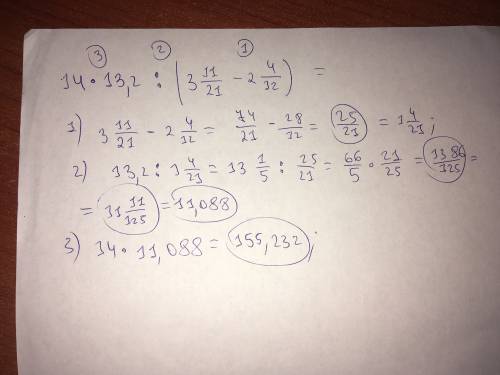 3 2 1
14 • 13,2 : (3 11/21 - 2 4/12) =
1) 3 11/21 - 2 4/12 = 74/21 - 28/12 = 25/21 = 1 4/21;
2) 13,2 : 1 4/21 = 13 1/5 : 25/21 = 66/5 • 21/25 = 1386/125 =
= 11 11/125 = 11,088
3) 14 • 11,088 = 155,232;